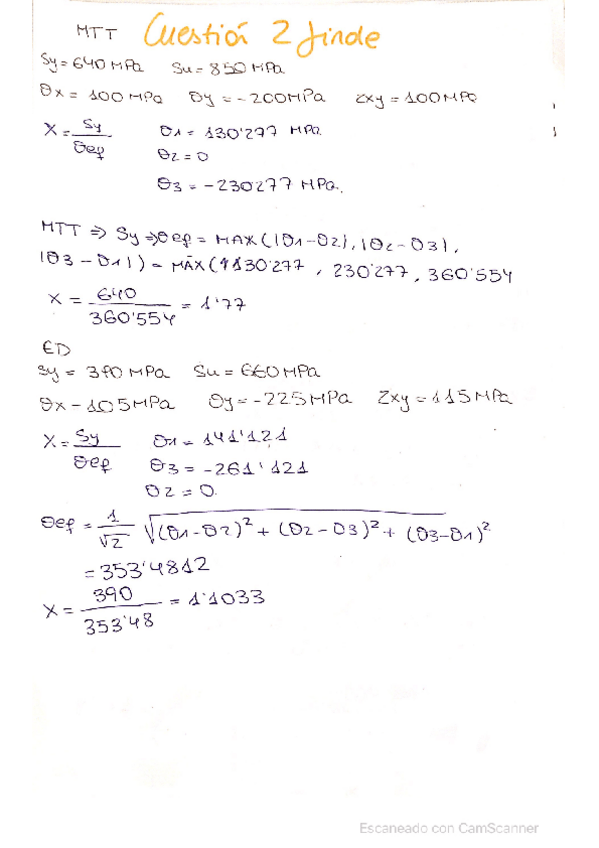 MTT Cuestión 2 finde
Sy = 640 MPa Su = 850 MPa
σx = 100 MPa σy = -200 MPa Zxy = 100 MPa
X = Sy / σef σ1 = 130'277 MPa
σ2 = 0
σ3 = -230'277 MPa.
MTT => Sy => σef = MAX (|σ1-σ2|, |σ2-σ3|,
|σ3-σ1|) = MÁX (130'277, 230'277, 360'554
X = 640 / 360'554 = 1'77
ED
Sy = 390 MPa Su = 660 MPa
σx - 105 MPa σy = -225 MPa Zxy = 115 MPa
X = Sy / σef σ1 = 141'121
σ3 = -261'121
σ2 = 0.
σef = 1/√2 √(σ1-σ2)² + (σ2-σ3)² + (σ3-σ1)²
= 353'4812
X = 390 / 353'48 = 1'1033
Escaneado con CamScanner